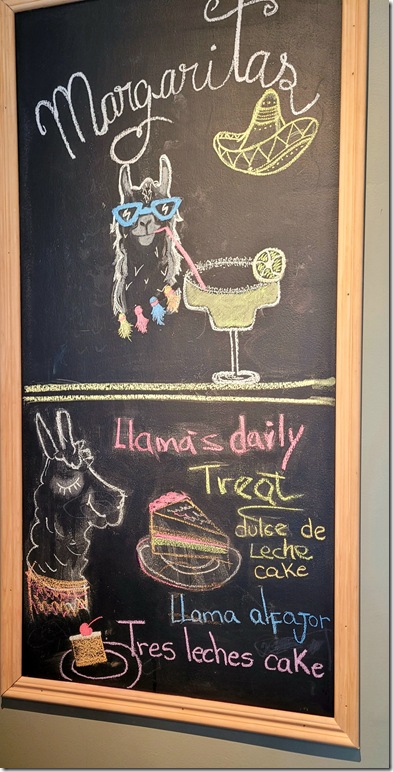 Margaritas
Llama's daily
Treat
dulce de
Leche
cake
Llama alfajor
Tres leches cake